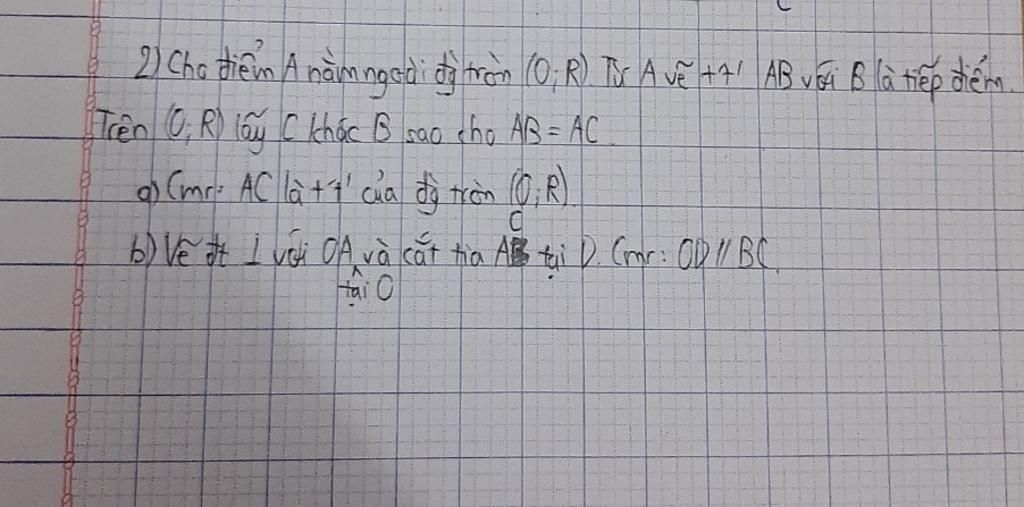 2) Cho điểm A nằm ngoài đg tròn (O; R). Từ A vẽ t² AB với B là tiếp điểm.
Trên (O; R) lấy C khác B sao cho AB = AC
a) Cmr: AC là t² của đg tròn (O; R).
b) Vẽ đt ⊥ với OA tại O và cắt tia AC tại D. Cmr: OD // BC.